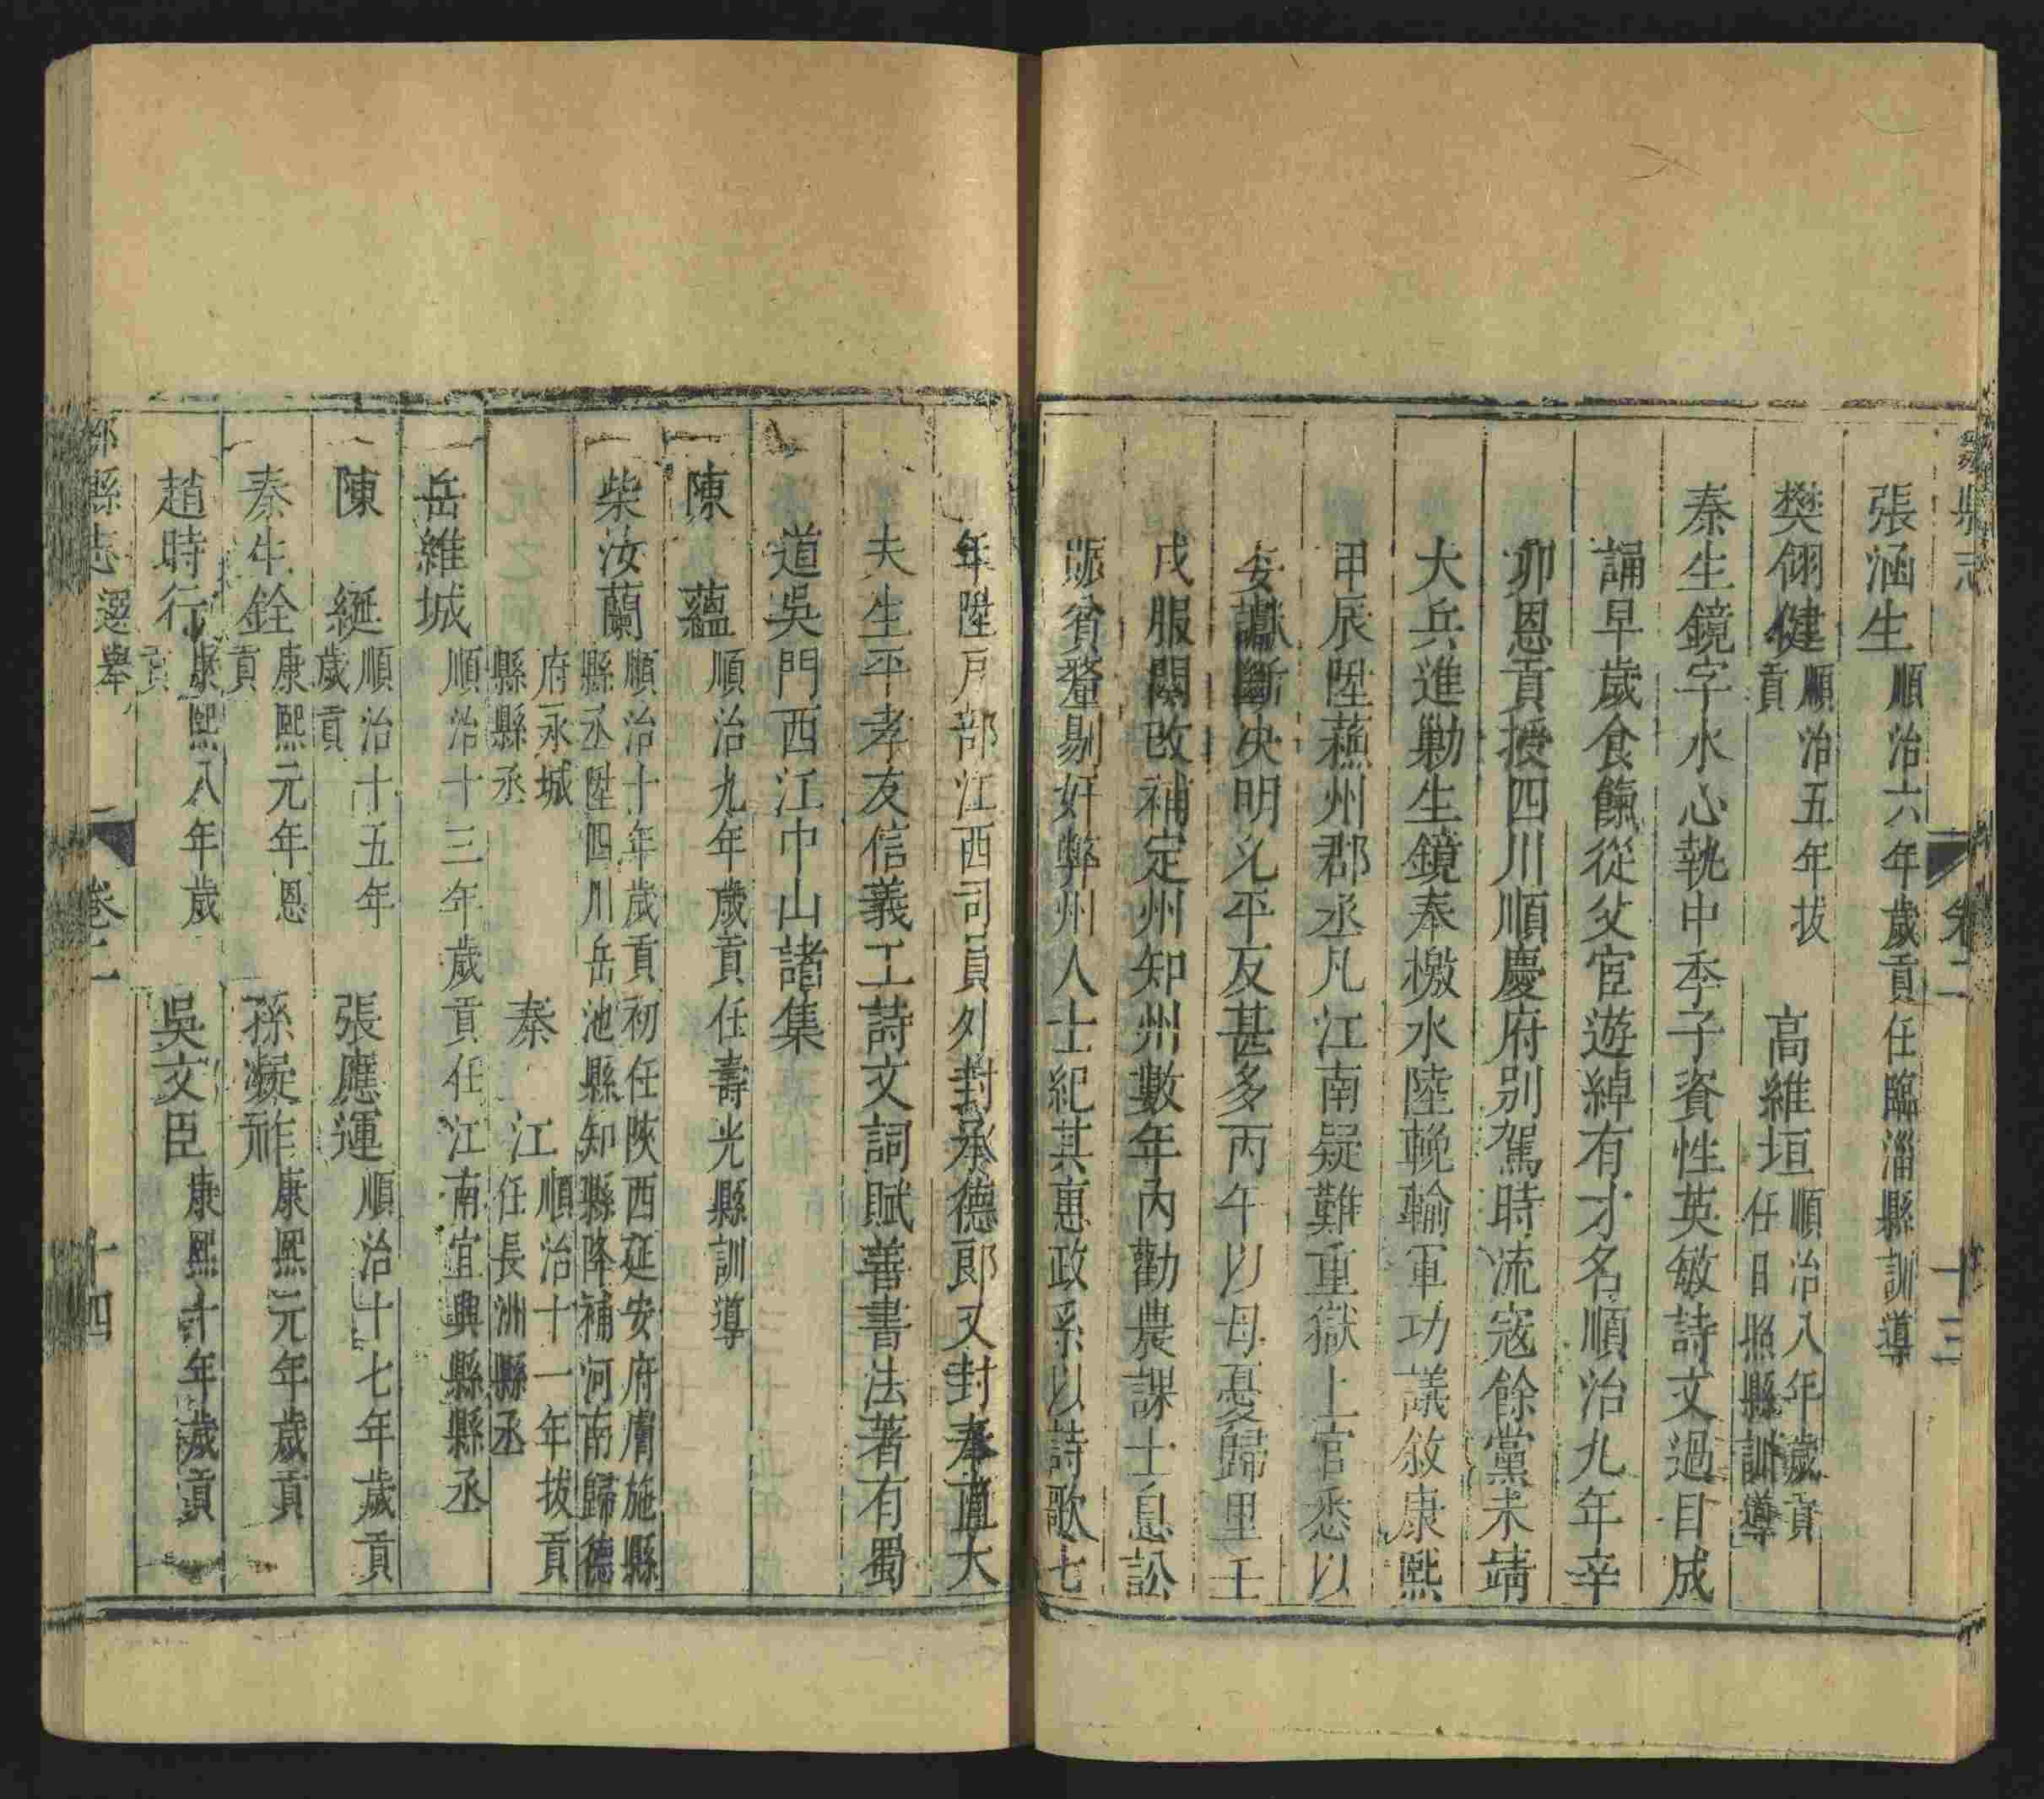 縣志 卷二 十三
張涵生 順治六年歲貢任臨淄縣訓導
樊翎健 順治五年拔
貢
高維垣 順治八年歲貢
任日照縣訓導
秦生鏡字水心執中季子資性英敏詩文過目成
誦早歲食餼從父宦遊綽有才名順治九年辛
卯恩貢授四川順慶府別駕時流寇餘黨未靖
大兵進勦生鏡奉檄水陸輓輸軍功議敘康熙
甲辰陞蘇州郡丞凡江南疑難重獄上官悉以
安讞斷決明允平反甚多丙午以母憂歸里壬
戌服闋改補定州知州數年內勸農課士息訟
賑貧釐剔奸弊州人士紀其惠政系以詩歌七
年陞戶部江西司員外封承德郎又封奉直大
夫生平孝友信義工詩文詞賦善書法著有蜀
道吳門西江中山諸集
陳 蘊 順治九年歲貢任壽光縣訓導
柴汝蘭 順治十年歲貢初任陝西延安府膚施縣
縣丞陞四川岳池縣知縣降補河南歸德
府永城
縣縣丞
秦 江 順治十一年拔貢
任長洲縣縣丞
岳維城 順治十三年歲貢任江南宜興縣縣丞
陳 綖 順治十五年
歲貢
張應運 順治十七年歲貢
秦生銓 康熙元年恩
貢
孫凝祚 康熙元年歲貢
趙時行 康熙八年歲
貢
吳文臣 康熙十年歲貢
縣志 選舉 卷二 十四